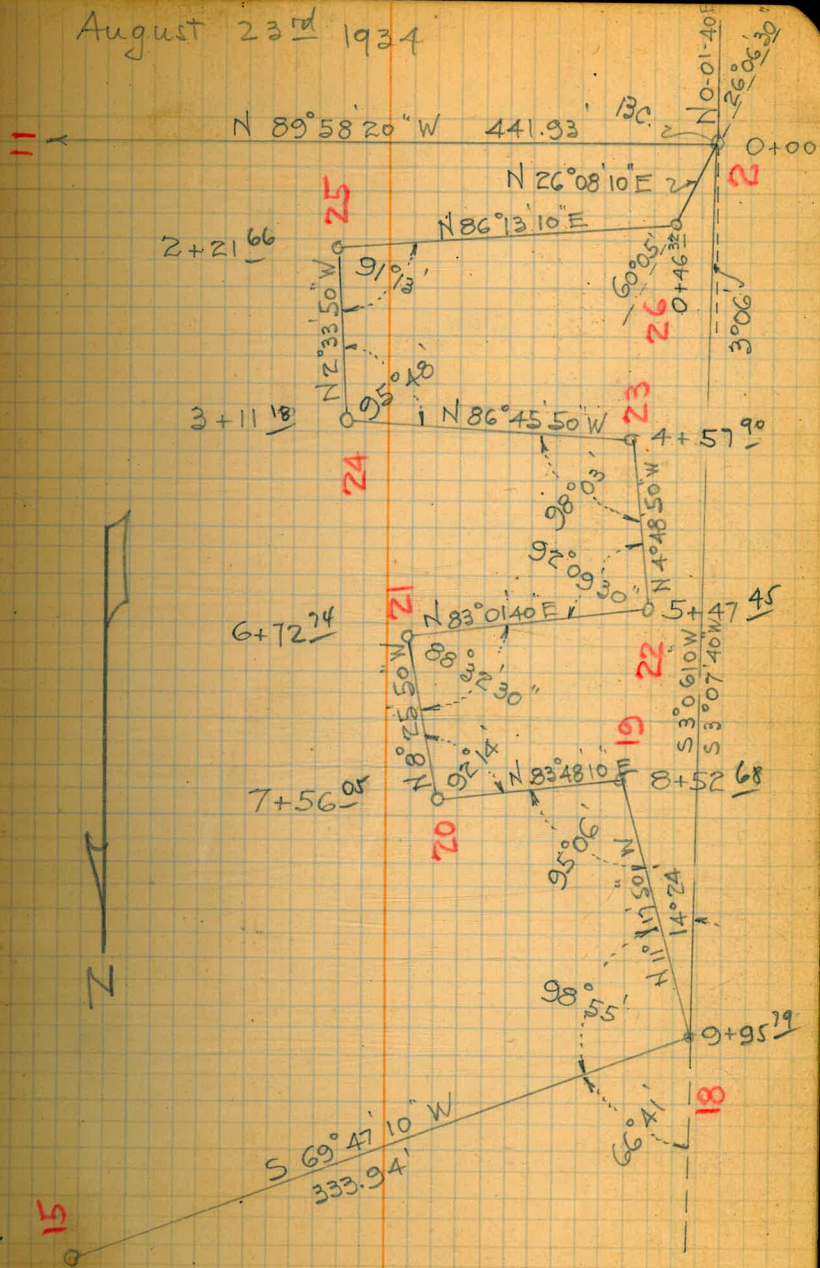 August 23rd 1934
N 0-01-40E
26°06'30"
11
N 89°58'20" W 441.93'
B.C.
0+00
2
N 26°08'10"E
25
N 86°13'10"E
2+21 66
91°13'
60°05'
0+46 32
26
3°06'
N 2°33'50" W
95°48'
3+11 18
N 86°45'50" W
23
4+57 90
24
98°03'
N 4°48'50" W
92°09'30"
21
N 83°01'40 E
5+47 45
6+72 74
22
88°32'30"
S 3°06 10 W
S 3°07'40 W
N 8°25'50" W
92°14'
19
N 83°48'10" E
8+52 68
7+56 05
20
95°06'
N 11°17'50" W
14°24'
Z
98°55'
9+95 79
18
66°41'
S 69°47'10" W
333.94'
15